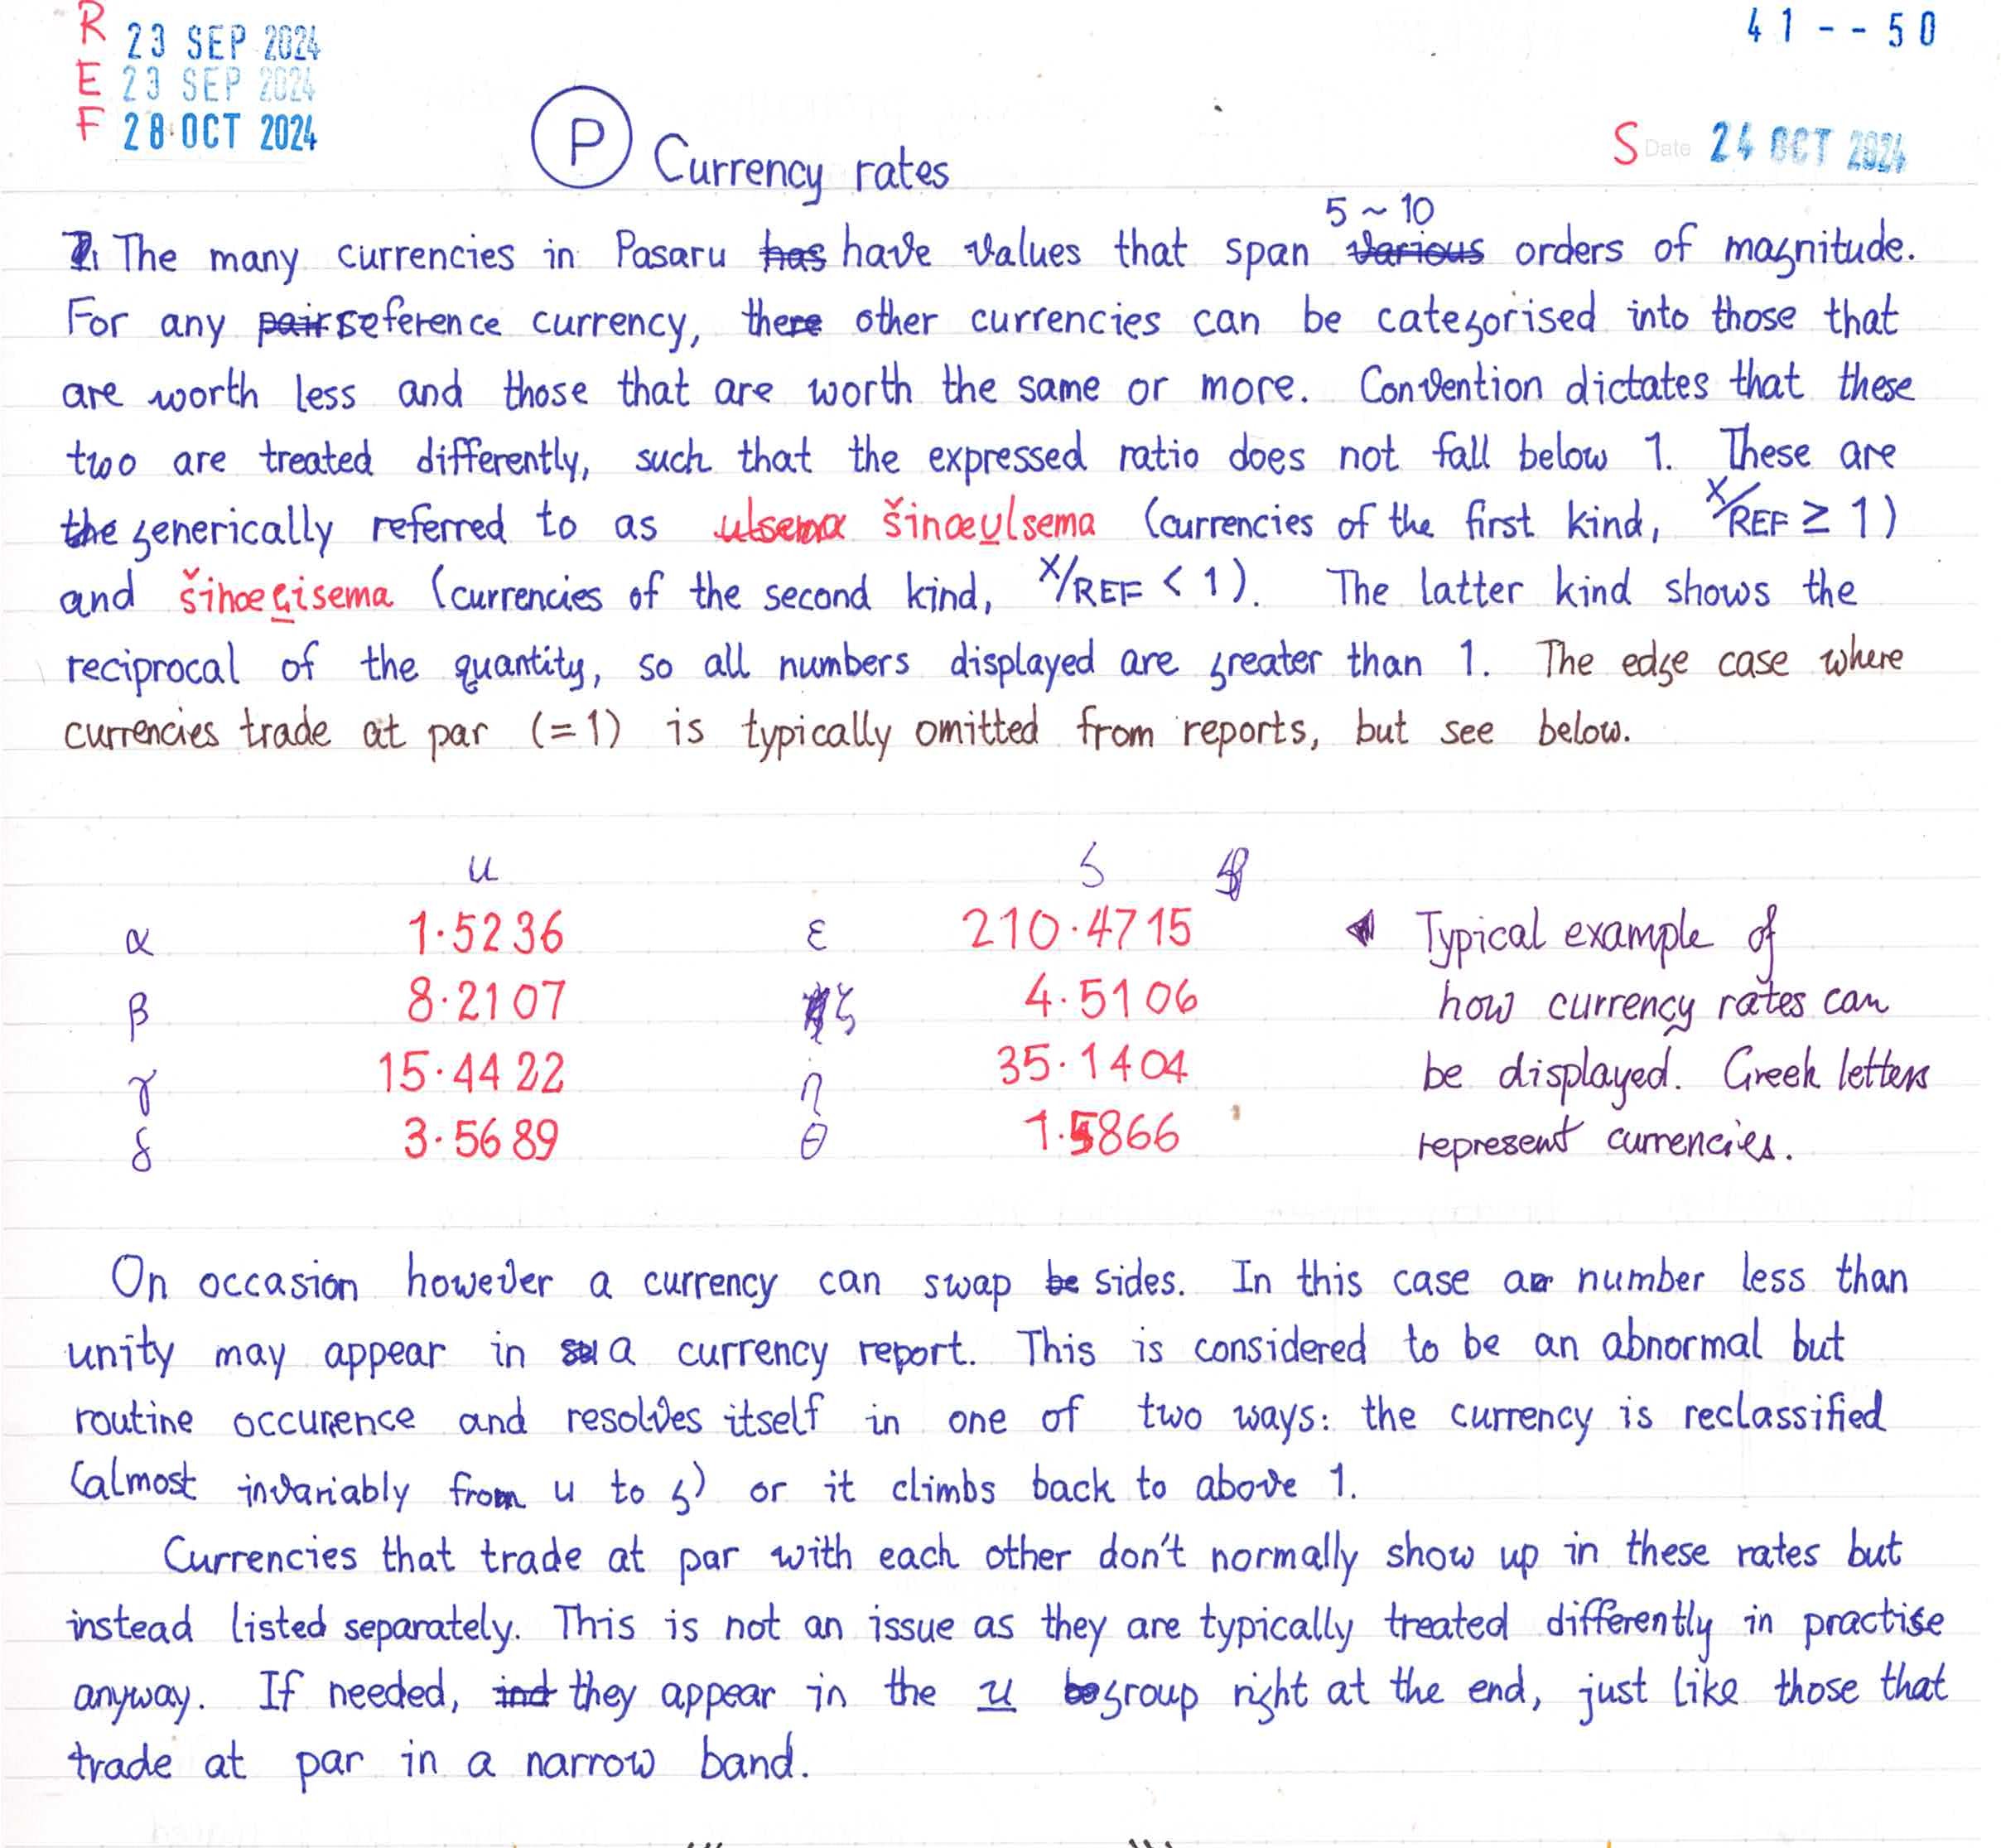 R 23 SEP 2024
E 23 SEP 2024
F 28 OCT 2024
41--50
S Date 24 OCT 2024
P Currency rates
5 ~ 10
1. The many currencies in Pasaru has have values that span various orders of magnitude.
For any pair reference currency, there other currencies can be categorised into those that
are worth less and those that are worth the same or more. Convention dictates that these
two are treated differently, such that the expressed ratio does not fall below 1. These are
the generically referred to as ulsema šinœulsema (currencies of the first kind, X/REF ≥ 1)
and šinœçisema (currencies of the second kind, X/REF < 1). The latter kind shows the
reciprocal of the quantity, so all numbers displayed are greater than 1. The edge case where
currencies trade at par (=1) is typically omitted from reports, but see below.
u ς
α 1·5236 ε 210·4715 ◀ Typical example of
β 8·2107 ζ 4·5106 how currency rates can
γ 15·4422 η 35·1404 be displayed. Greek letters
δ 3·5689 θ 1·5866 represent currencies.
On occasion however a currency can swap be sides. In this case a number less than
unity may appear in a currency report. This is considered to be an abnormal but
routine occurence and resolves itself in one of two ways: the currency is reclassified
(almost invariably from u to ς) or it climbs back to above 1.
Currencies that trade at par with each other don't normally show up in these rates but
instead listed separately. This is not an issue as they are typically treated differently in practise
anyway. If needed, ind they appear in the u be group right at the end, just like those that
trade at par in a narrow band.